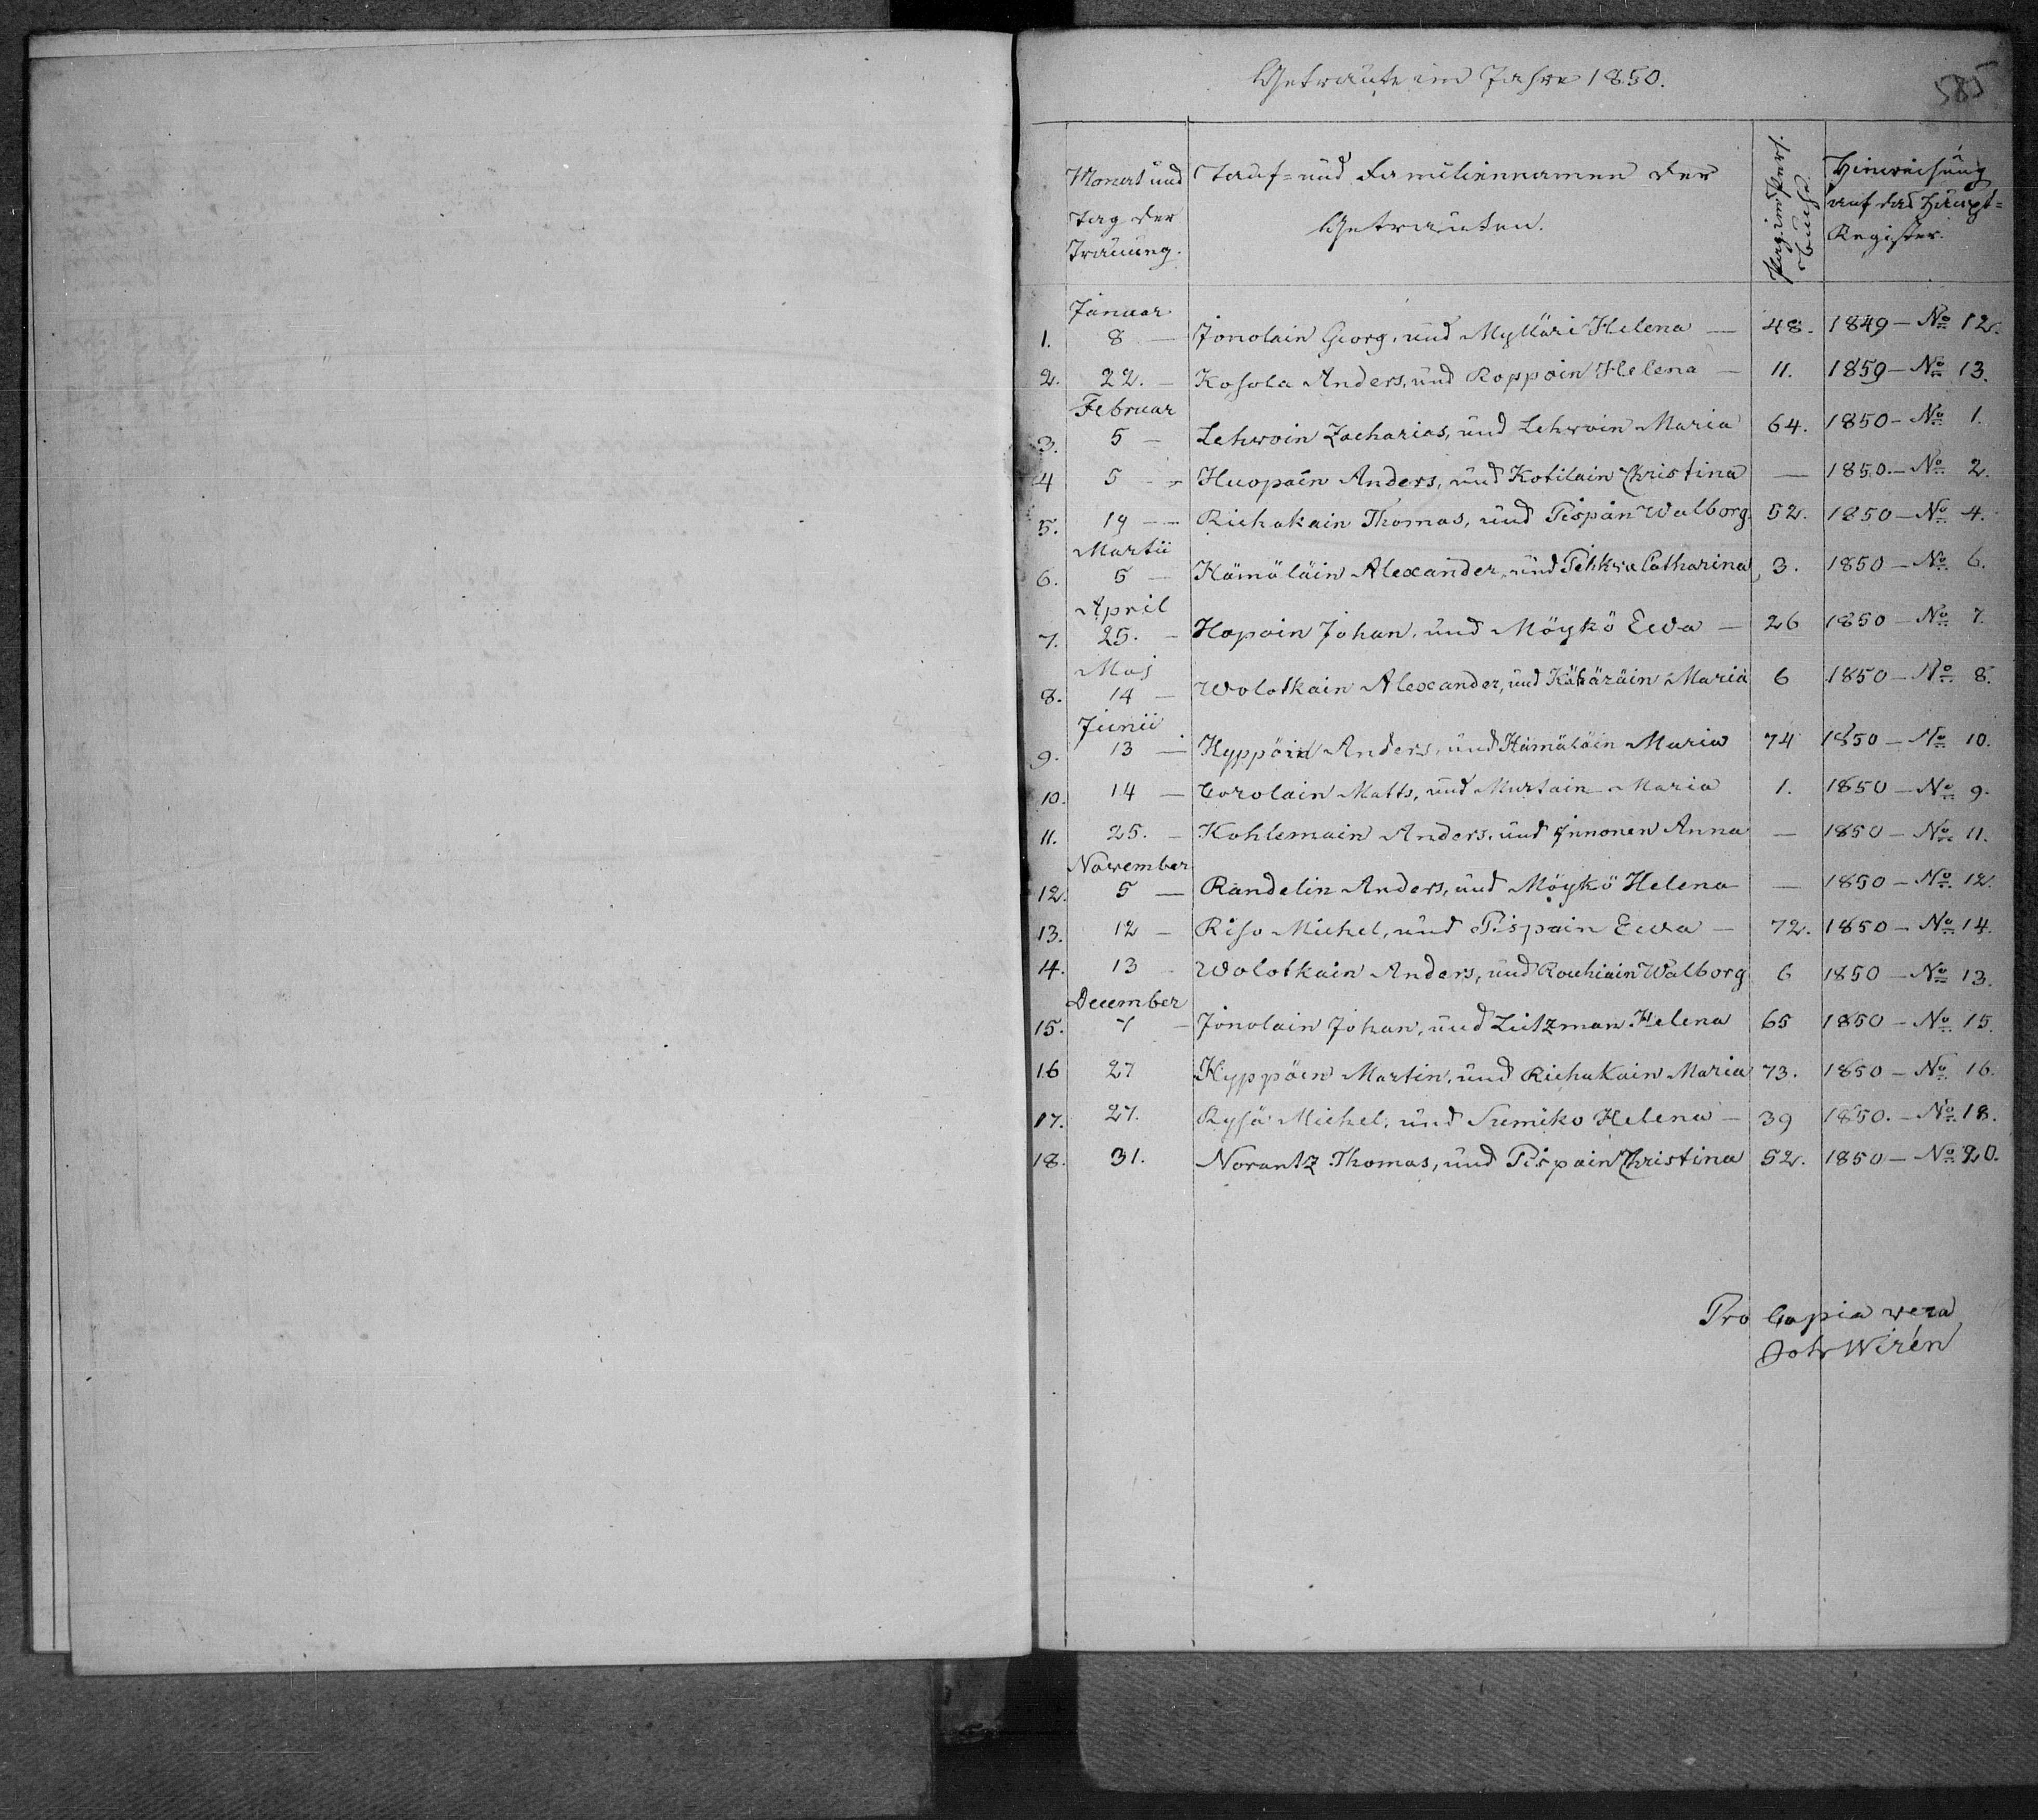 Getraute im Jahre 1850.
585
Monat und Tag der Trauung. Tauf= und Familiennamen der Getrauten. Hinweisung auf das Haupt=Register.
Januar
1. 8 — Jonolain Georg, und Mylläri Helena — 48. 1849 — No 12.
2. 22. — Kosola Anders, und Roppoin Helena — 11. 1859 — No 13.
Februar
3. 5 — Lehwoin Zacharias, und Lehwoin Maria 64. 1850 — No 1.
4 5 — Huopain Anders, und Kotilain Christina — 1850. — No 2.
5. 19 — Riehakain Thomas, und Pispän Walborg. 52. 1850 — No 4.
Martii
6. 5 — Hämöläin Alexander, und Pihkwa Catharina 3. 1850 — No 6.
April
7. 25. — Hapoin Johan, und Möykö Ewa — 26 1850 — No 7.
Maj
8. 14 — Wolotkain Alexander, und Maria 6 1850 — No 8.
Junii
9. 13 — Hyppöin Anders, und Hämäläin Maria 74 1850 — No 10.
10. 14 — Corolain Matts, und Murtain Maria 1. 1850 — No 9.
11. 25. — Kohlemain Anders, und Innonen Anna — 1850 — No 11.
November
12. 5 — Randelin Anders, und Möykö Helena — 1850 — No 12.
13. 12 — Riso Michel, und Pispain Ewa — 72. 1850 — No 14.
14. 13 Wolotkain Anders, und Rouhiain Walborg 6 1850 — No 13.
December
15. 7 — Jonolain Johan, und Lutzman Helena 65 1850 — No 15.
16 27 Hyppöin Martin, und Riehakain Maria 73. 1850 — No 16.
17. 27. Rysä Michel, und Sumiko Helena — 39 1850. — No 18.
18. 31. Norantz Thomas, und Pispain Christina 52. 1850 — No 20.
Pro Copia vera
Joh Wirén